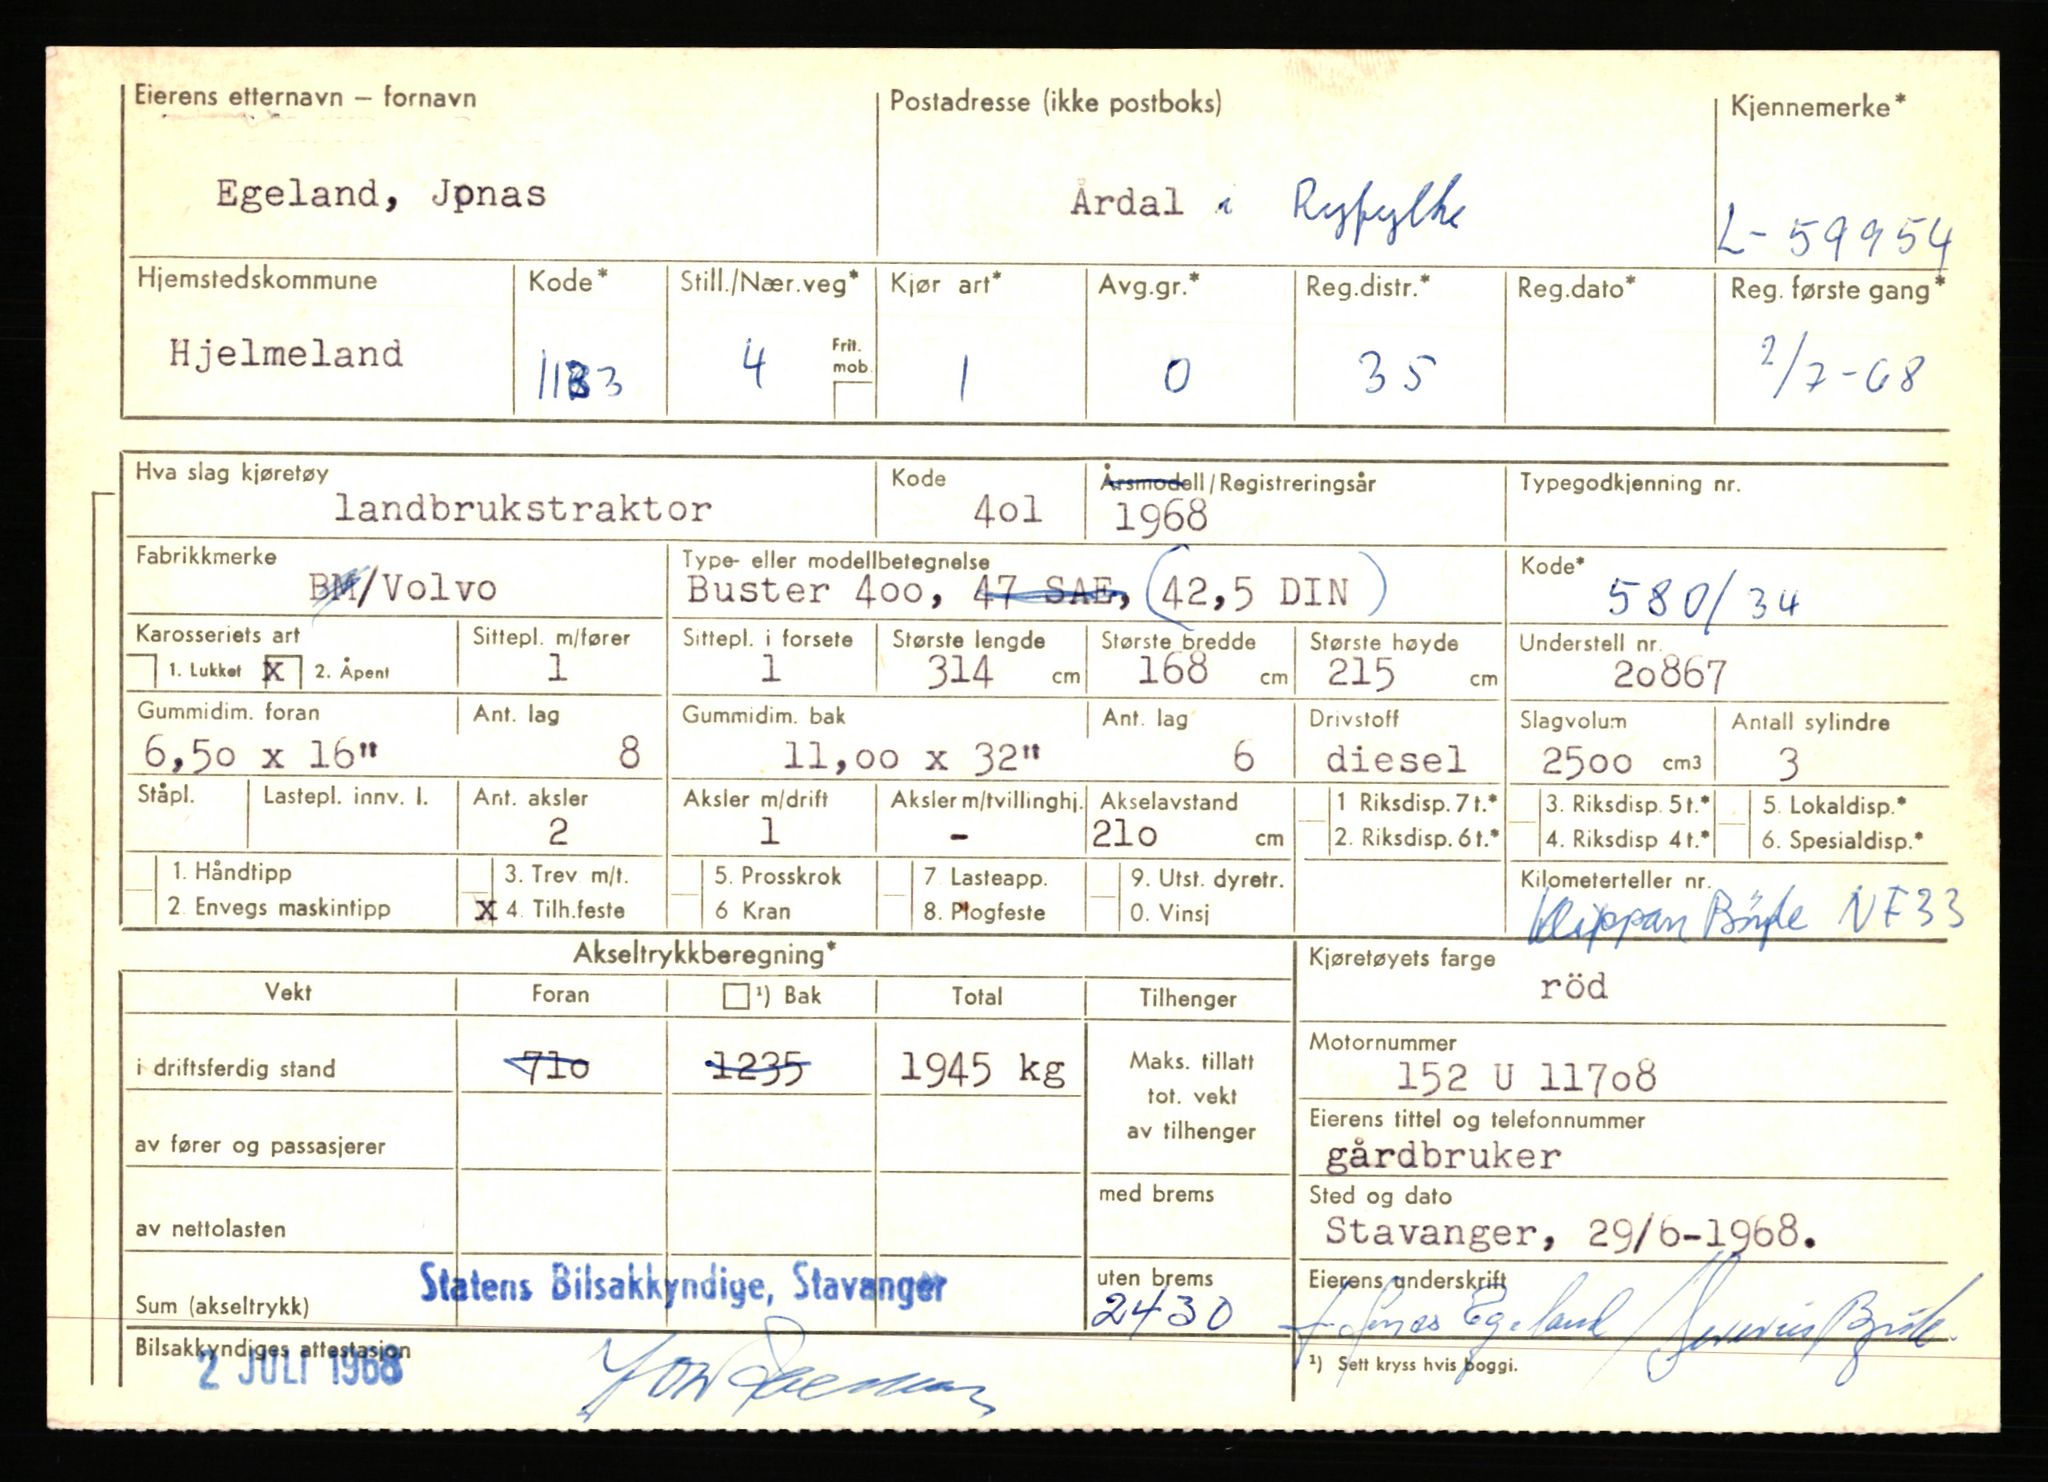 Eierens etternavn – fornavn Postadresse (ikke postboks) Kjennemerke*
Egeland, Jonas Årdal i Ryfylke L-59954
Hjemstedskommune Kode* Still./Nær.veg* Kjør art* Avg.gr.* Reg.distr.* Reg.dato* Reg. første gang*
Hjelmeland 1133 4 Frit. mob. 1 0 35 2/7-68
Hva slag kjøretøy Kode Årsmodell/Registreringsår Typegodkjenning nr.
landbrukstraktor 4o1 1968
Fabrikkmerke Type- eller modellbetegnelse Kode*
BM/Volvo Buster 4oo, 47 SAE, (42,5 DIN) 580/34
Karosseriets art Sittepl. m/fører Sittepl. i forsete Største lengde Største bredde Største høyde Understell nr.
1. Lukket X 2. Åpent 1 1 314 cm 168 cm 215 cm 2o867
Gummidim. foran Ant. lag Gummidim. bak Ant. lag Drivstoff Slagvolum Antall sylindre
6,5o x 16" 8 11,oo x 32" 6 diesel 25oo cm3 3
Ståpl. Lastepl. innv. l. Ant. aksler Aksler m/drift Aksler m/tvillinghj. Akselavstand 1 Riksdisp. 7 t.* 3. Riksdisp. 5 t.* 5. Lokaldisp.*
2 1 - 21o cm 2. Riksdisp. 6 t.* 4. Riksdisp 4 t.* 6. Spesialdisp.*
1. Håndtipp 3. Trev m/t. 5. Prosskrok 7 Lasteapp. 9. Utst. dyretr. Kilometerteller nr.
2 Envegs maskintipp X 4. Tilh.feste 6 Kran 8. Plogfeste 0. Vinsj Klippan Böyle NF33
Akseltrykkberegning* Kjøretøyets farge
Vekt Foran ¹) Bak Total Tilhenger röd
i driftsferdig stand 71o 1235 1945 kg Maks. tillatt tot. vekt av tilhenger Motornummer
152 U 117o8
av fører og passasjerer Eierens tittel og telefonnummer
gårdbruker
av nettolasten med brems Sted og dato
Stavanger, 29/6-1968.
Statens Bilsakkyndige, Stavanger uten brems Eierens underskrift
Sum (akseltrykk) 2430 Jonas Egeland /
Bilsakkyndiges attestasjon ¹) Sett kryss hvis boggi.
2 JULI 1968